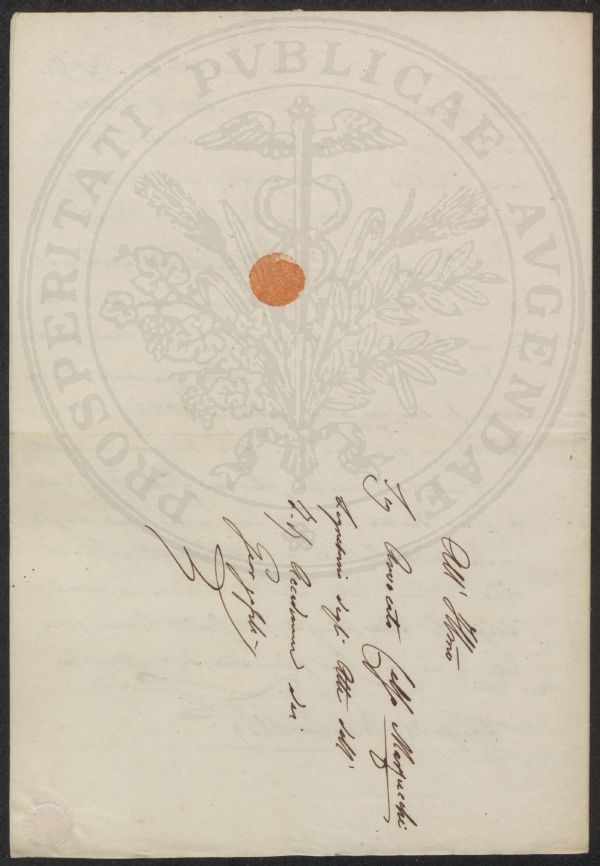 PROSPERITATI PVBLICAE AVGENDAE
All' Illmo
Sig Avvocato Celso Marzucchi
Segretario degli Atti dell'
I. R. Accademia dei
Georgofili